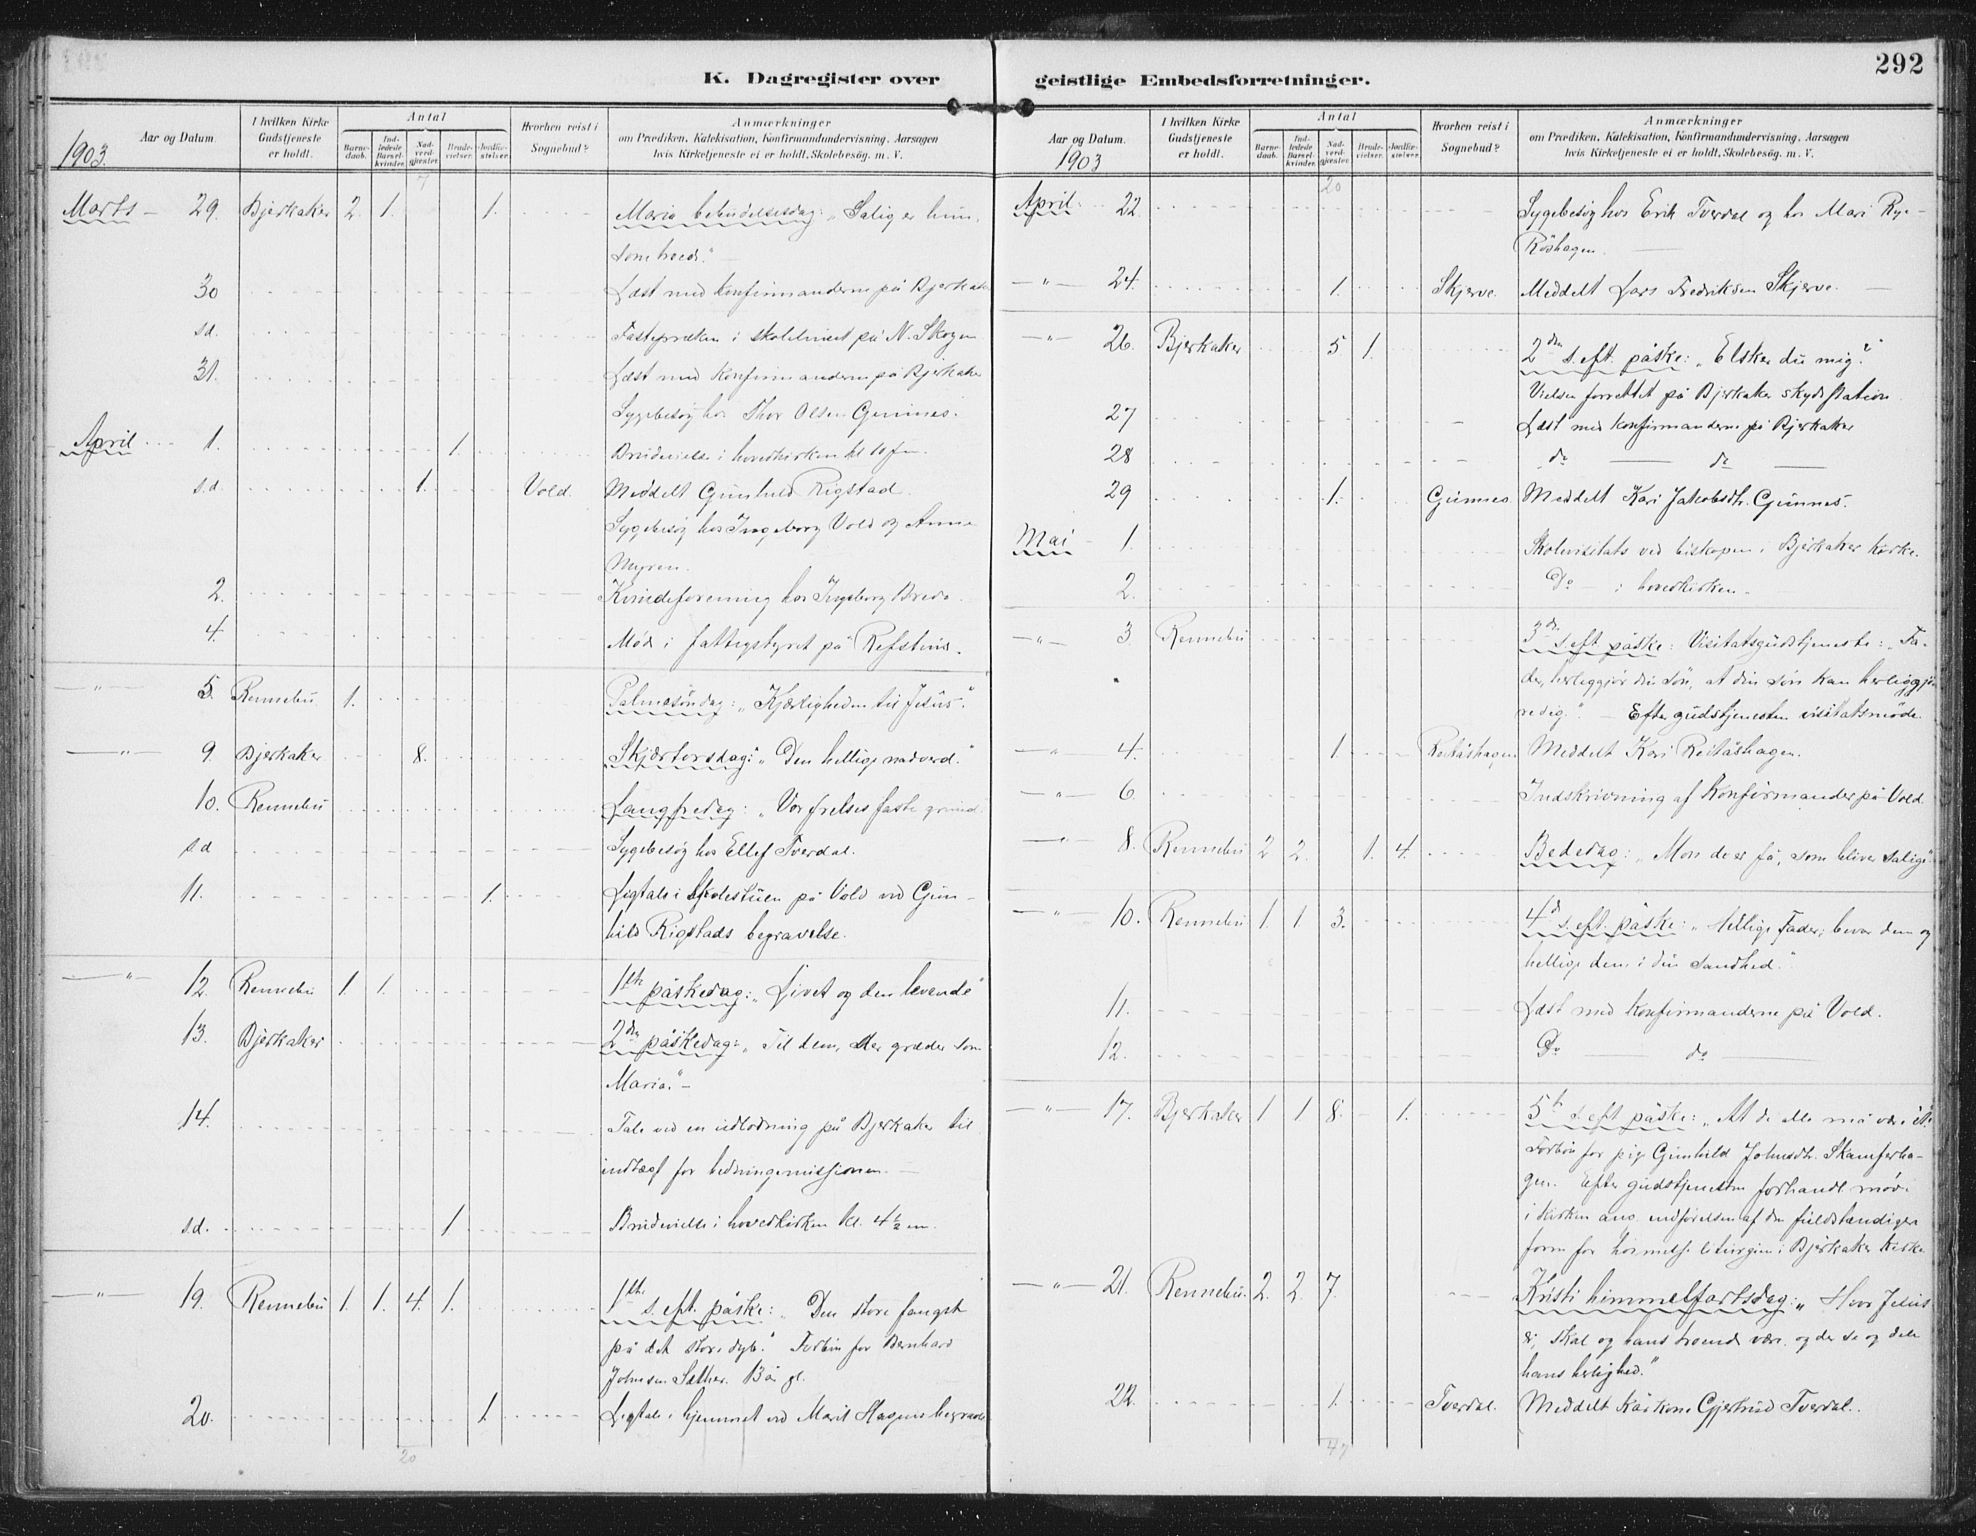 292
K. Dagregister over
Aar og Datum.
I hvilken Kirke Gudstjeneste er holdt.
Antal
Barnedaab. Indledede Barselkvinder. Nadverdgjester. Brudevielser. Jordfæstelser.
Hvorhen reist i Sognebud?
Anmærkninger
om Prædiken, Katekisation, Konfirmandundervisning, Aarsagen
hvis Kirketjeneste ei er holdt, Skolebesøg. m. V.
1903.
7
Marts 29. Bjerkaker 2. 1. 1. Maria bebudelsesdag: „Salig er hun,
som troede."
30 Læst med konfirmanderne på Bjerkaker
s.d. Fasteprædiken i skolehuset på N. Skogen
31. Læst med konfirmanderne på Bjerkaker
Sygebesøg hos Thor Olsen Gunnes.
April 1. 1. Brudevielse i hovedkirken kl. 10 fm.
s.d. 1. Vold. Meddelt Gunhild Rigstad.
Sygebesøg hos Ingeborg Vold og Anne
Myren.
2. Kvindeforening hos Ingeborg Brede.
4. Møde i fattigstyret på Refstad.
—„— 5. Rennebu 1. Palmesöndag: „Kjærligheden til Jesus".
—„— 9. Bjerkaker 8. Skjærtorsdag: „Den hellige nadverd."
10. Rennebu Langfredag: „Vor frelses faste grund.
s.d Sygebesøg hos Ellef Tverdal.
11. 1. Ligtale i Skolestuen på Vold ved Gun-
hild Rigstads begravelse.
—„— 12. Rennebu 1. 1. 1ste påskedag: „Livet og den levende"
13. Bjerkaker 2den påskedag: „Til dem, der græder som
Maria."
14. Tale ved en udlodning på Bjerkaker til
indtægt for hedningemissjonen.
s.d. 1. Brudevielse i hovedkirken kl. 4½ em.
—„— 19. Rennebu 1. 1. 4. 1. 1ste s. eft. påske: „Den store fangst
på det store dyb." Forbön for Bernhard
Johnsen Sæther. Bö gl.
20. 1. Ligtale i hjemmet ved Marit Hagens begravelse
20
geistlige Embedsforretninger.
Aar og Datum.
I hvilken Kirke Gudstjeneste er holdt.
Antal
Barnedaab. Indledede Barselkvinder. Nadverdgjester. Brudevielser. Jordfæstelser.
Hvorhen reist i Sognebud?
Anmærkninger
om Prædiken, Katekisation, Konfirmandundervisning, Aarsagen
hvis Kirketjeneste ei er holdt, Skolebesøg. m. V.
1903
20
April 22. Sygebesøg hos Erik Tverdal og hos Mari Rye-
Röshagen.
—„— 24. 1. Skjerve. Meddelt Lars Fredriksen Skjerve.
—„— 26. Bjerkaker 5 1. 2den s. eft. påske: „Elsker du mig?"
Vielsen forrettet på Bjerkaker skydsstation.
27 Læst med konfirmanderne på Bjerkaker
28 do — do —
29 1. Gunnes Meddelt Kari Jakobsdtr. Gunnes.
Mai 1. Skolevisitats ved biskopen i Bjerkaker kirke.
2. Do — i hovedkirken.
—„— 3. Rennebu 3de s. eft. påske: Visitatsgudstjeneste: „Fa-
der, herliggjör din sön, at din sön kan herliggjö-
re dig." — Efter gudstjenesten visitatsmöde.
—„— 4. 1. Reitåshagen Meddelt Kari Reitåshagen.
—„— 6. Indskrivning af Konfirmander på Vold
—„— 8. Rennebu 2 2. 1. 4. Bededag: „Mon de er få, som bliver salige".
—„— 10. Rennebu 1. 1 3. 4de s. eft. påske: „Hellige Fader, bevar dem og
hellige dem i din sandhed."
11. Læst med konfirmanderne på Vold.
12. Do — do —
—„— 17. Bjerkaker 1 1 8. 1. 5te s. eft. påske: „At de alle må være ét"
Forbön for pige Gunhild Johnsdtr. Skamferha-
gen. Efter gudstjenesten forhandl. møde
i kirken ang. indförelsen af den fuldstændiger
form for höimesse liturgien i Bjerkaker kirke.
—„— 21. Rennebu 2. 2. 7. Kristi himmelfartsdag: „Hvor Jesus
er, skal og hans troende være og der se og dele
hans herlighed."
22. 1. Tverdal. Meddelt Kårkone Gjertrud Tverdal.
47